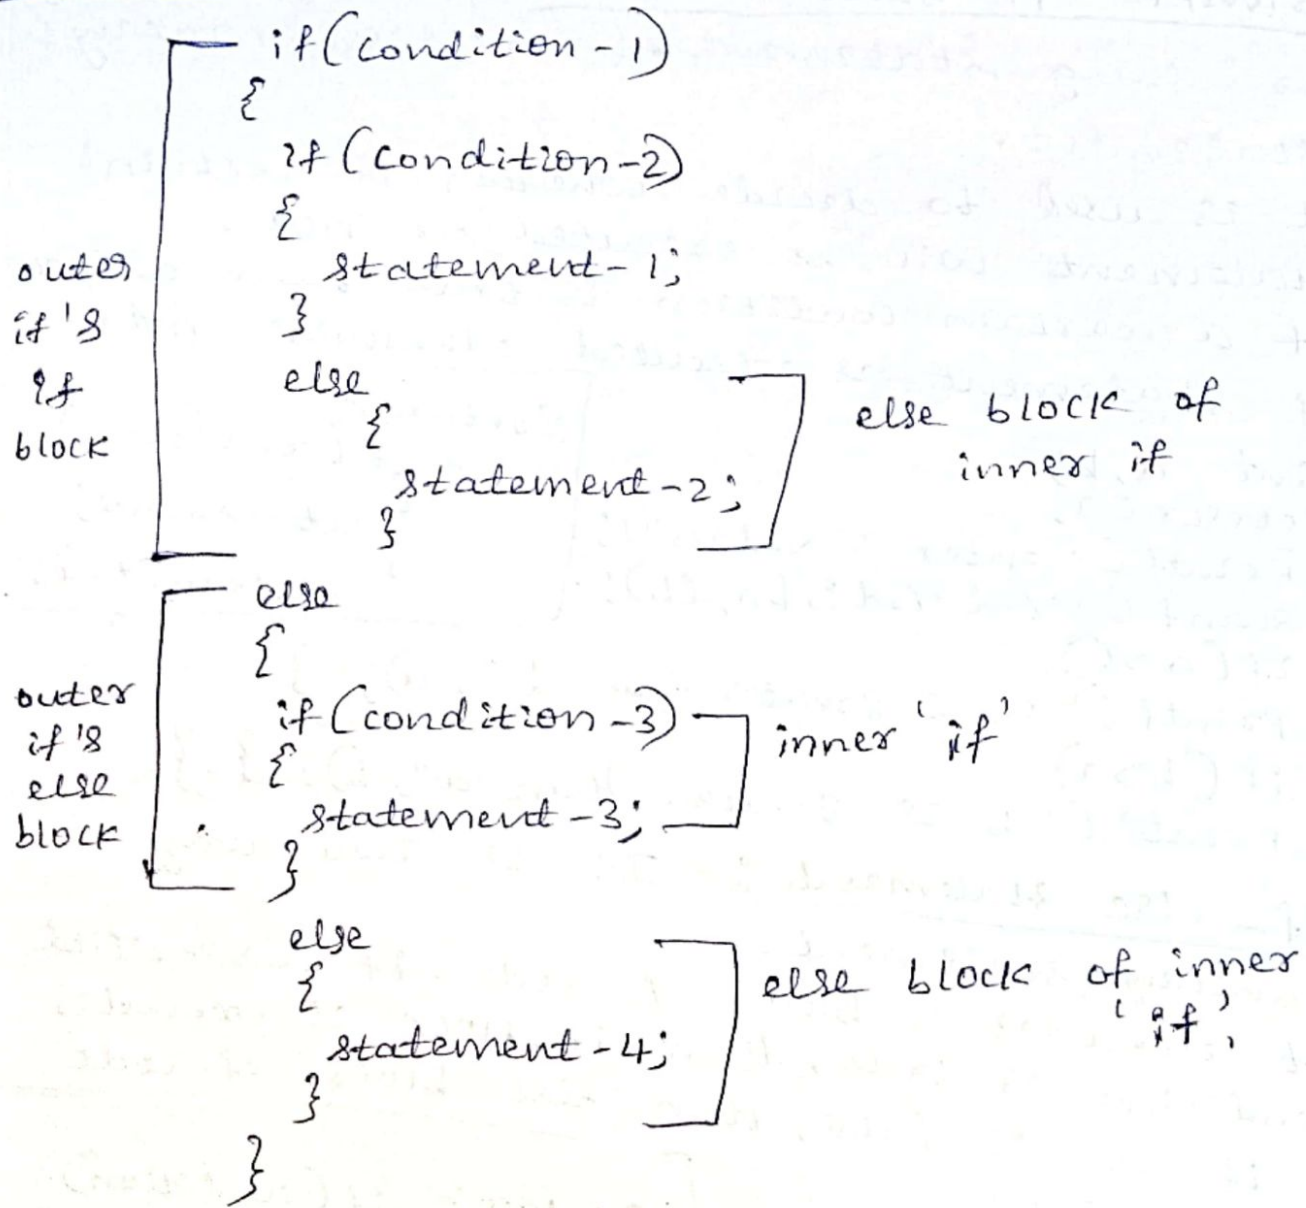 if(condition-1)
{
if(condition-2)
{
statement-1;
}
else
{
statement-2;
}
outer
if's
if
block
else block of
inner if
else
{
if(condition-3)
{
statement-3;
}
outer
if's
else
block
inner 'if'
else
{
statement-4;
}
else block of inner
'if',
}